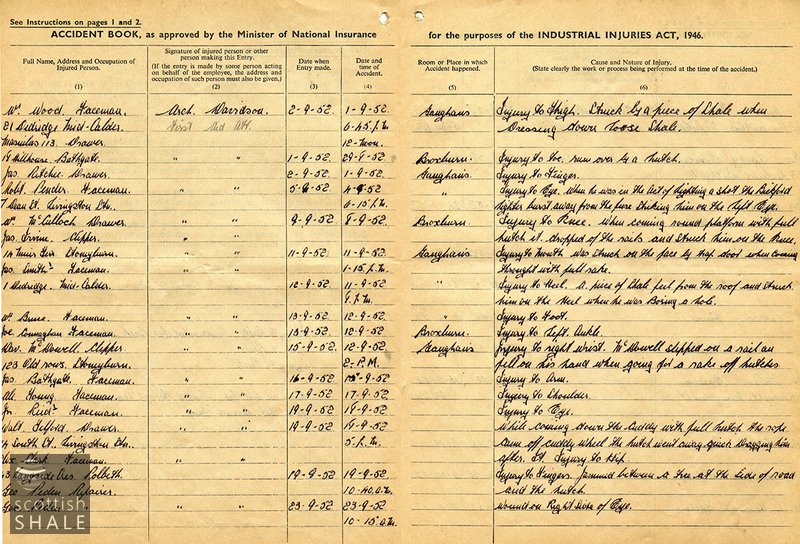 See Instructions on pages 1 and 2.
ACCIDENT BOOK, as approved by the Minister of National Insurance for the purposes of the INDUSTRIAL INJURIES ACT, 1946.
Full Name, Address and Occupation of Injured Person.
(1)
Signature of injured person or other person making this Entry.
(If the entry is made by some person acting on behalf of the employee, the address and occupation of such person must also be given.)
(2)
Date when Entry made.
(3)
Date and time of Accident.
(4)
Room or Place in which Accident happened.
(5)
Cause and Nature of Injury.
(State clearly the work or process being performed at the time of the accident.)
(6)
Wm. Wood. Faceman. Arch. Davidson. 2-9-52. 1-9-52. Injury to Thigh. Struck by a piece of Shale when
21 Dedridge Mid-Calder. First Aid Att. 6-45 p.m. Dressing down loose Shale.
113. Drawer. 12-noon.
Millhouse. Bathgate. " " 1-9-52. 29-9-52. Broxburn. Injury to toe. run over by a hutch.
Jas. Ritchie. Drawer. " " 2-9-52. 1-9-52. Injury to Finger.
Robt. Pender. Faceman. " " 5-9-52 4-9-52 " Injury to Eye. When he was in the Act of lighting a shot the
St. Livingston Stn. 6-15 p.m. lighter burst away from the fuse striking him on the left Eye.
Wm. McCulloch. Drawer. " " 9-9-52. 8-9-52. Broxburn. Injury to Knee. When coming round platform with full
Jas. Irvine. Clipper. " " hutch it dropped of the rails and struck him on the Knee.
Stoneyburn. " " 11-9-52. 11-9-52. Injury to Mouth was struck on the face by trap door when coming
Jas. Smith. Faceman. 1-15 p.m. through with full rake.
1 Dedridge. Mid-Calder. " " 12-9-52. 11-9-52 " Injury to Heel. A piece of Shale fell from the roof and struck
p.m. him on the Heel when he was Boring a hole.
Wm. Bruce. Faceman. " " 13-9-52 12-9-52. " Injury to Foot.
Joe. Connaghan Faceman. " " 13-9-52 12-9-52. Broxburn. Injury to left. Ankle.
Dav. McDowell. Clipper " " 15-9-52. 12-9-52. Injury to right wrist. McDowell slipped on a rail an
123 Old rows. Stoneyburn. 2- P.M. fell on his hand when going for a rake off hutches
Jas. Bathgate. Faceman. " " 16-9-52 Injury to Arm.
Al. Young. Faceman. " " 17-9-52 17-9-52. Injury to Shoulder.
Jn. Reid. Faceman. " " 19-9-52 19-9-52. Injury to Eye.
Walt. Telford. Drawer " " 19-9-52 19-9-52 While coming down the Cuddy with full hutch the rope
South St. Livingston Stn. 5. p.m. came off cuddy wheel the hutch went away quick Dragging him
Clark Faceman. " " after. It. Injury to Hip.
Cres. Polbeth " " 19-9-52 19-9-52. Injury to Fingers. Jammed between a tree at the side of road
Geo Repairer. 10-40 a.m. and the hutch.
" " 23-9-52 23-9-52 Wound on Right side of Eye.
10-15 a.m.
scottish
SHALE